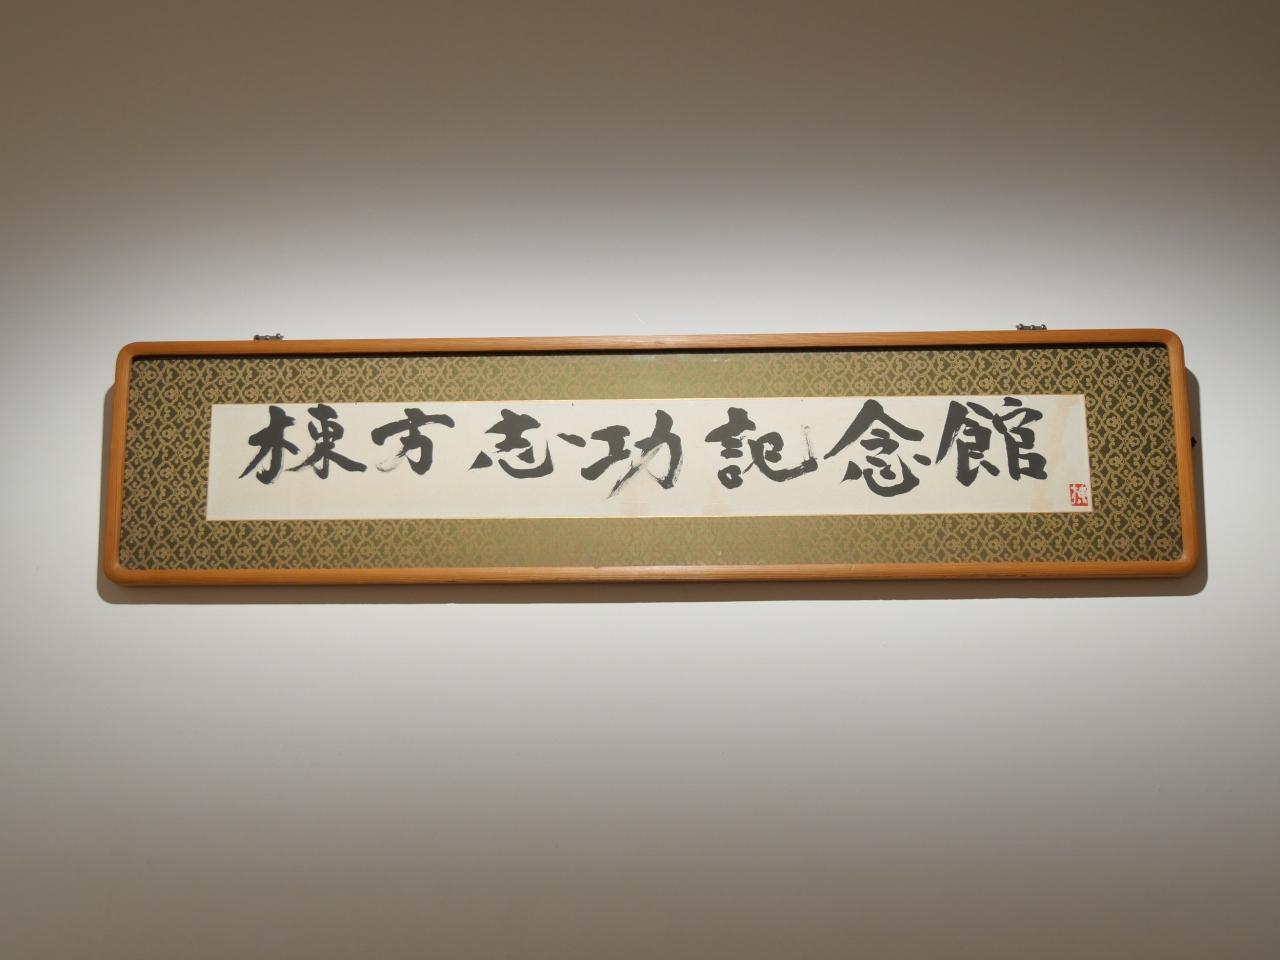 棟方志功記念館
棟